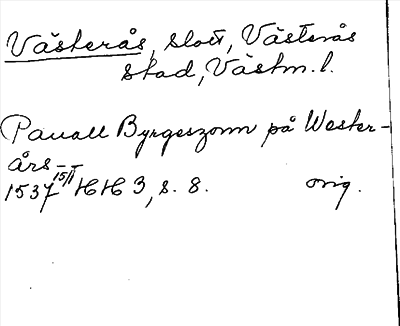 Västerås, slott, Västerås
stad, Västm. l.
Pauall Byrgeszonn på Wester-
års -
1537 15/1 HH 3, s. 8. orig.